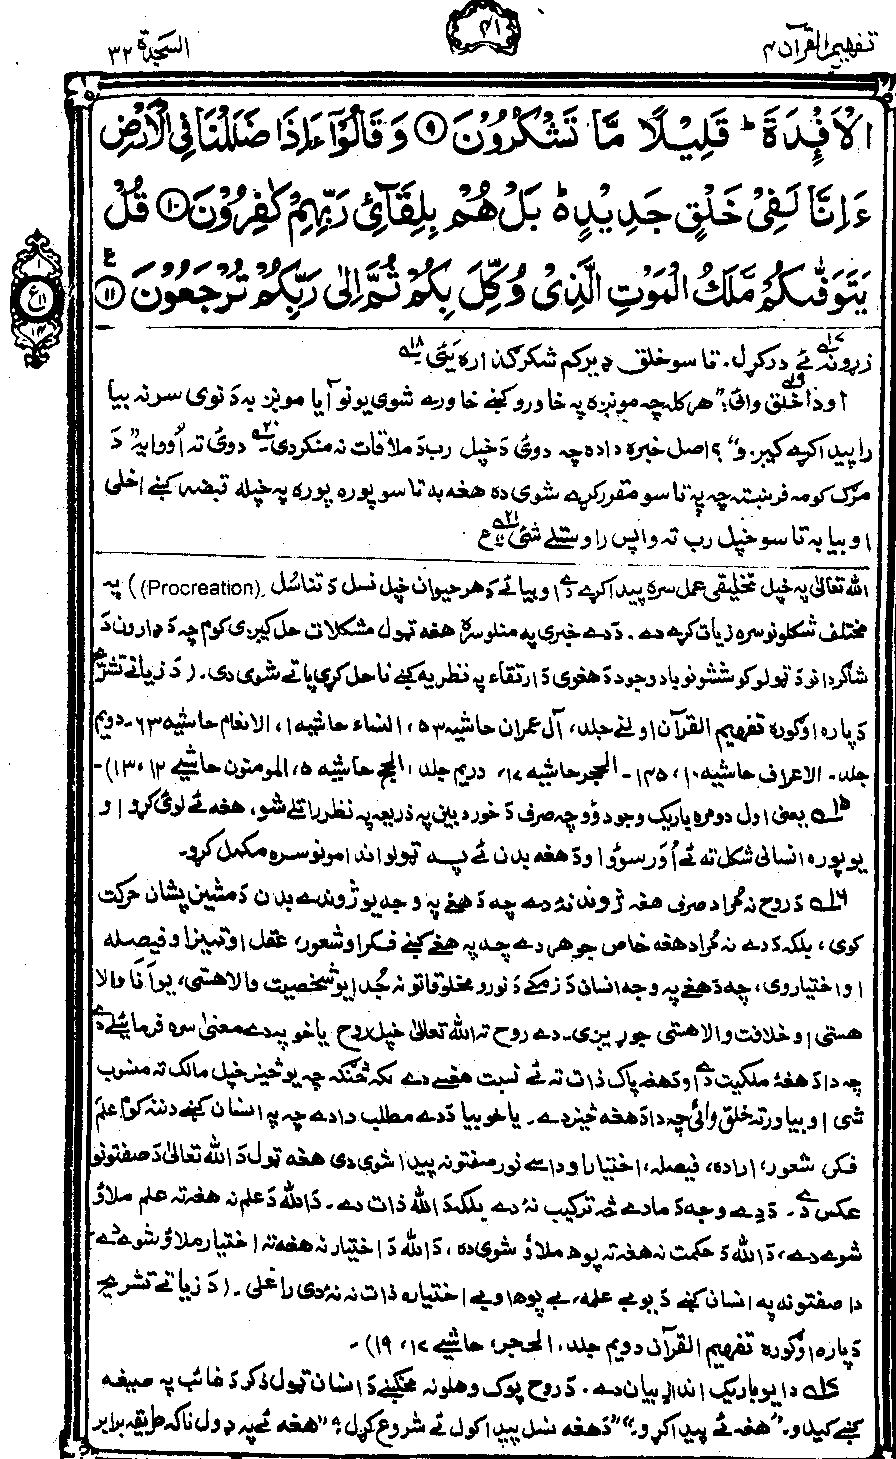 تفهيم القرآن ۴
۴۱
السجدة ۳۲
الْاَفْـِٕدَةَ ؕ قَلِيْلًا مَّا تَشْكُرُوْنَ ۹ وَ قَالُوْۤا ءَاِذَا ضَلَلْنَا فِي الْاَرْضِ
ءَاِنَّا لَفِيْ خَلْقٍ جَدِيْدٍ ؕ بَلْ هُمْ بِلِقَآئِ رَبِّهِمْ كٰفِرُوْنَ ۱۰ قُلْ
يَتَوَفّٰىكُمْ مَّلَكُ الْمَوْتِ الَّذِيْ وُكِّلَ بِكُمْ ثُمَّ اِلٰى رَبِّكُمْ تُرْجَعُوْنَ ۱۱
ع
زړونه ئے درکړل. تاسو خلق ډير کم شکر گذاره يئ ۱۸
او دا خلق وائي: "هر کله چه مونږه په خاورو کښے خاورے شوي يونو آيا مونږ به دَ نوي سر نه بيا
را پيدا کړے کيږو" ؟ اصل خبره داده چه دوئ دَ خپل رب دَ ملاقات نه منکر دي ۲۰ دوئ ته اووايه" دَ
مرګ کومه فرښته چه په تاسو مقرر کړے شوی ده هغه به تاسو پوره پوره په خپله قبضه کښے اخلی
او بيا به تاسو خپل رب ته واپس راوستلے شئ ۲۱ ع
الله تعالیٰ په خپل تخليقی عمل سره پيدا کړے دے او بيا ئے دَ هر حيوان خپل نسل دَ تناسُل (Procreation) په
مختلف شکلونو سره زيات کړے دے. دَ دے خبرې په منلو سره هغه ټول مشکلات حل کيږي کوم چه دَ ډارون دَ
شاگردانو دَ ټولو کوششونو باوجود دَ هغوی دَ ارتقاء په نظريه کښے ناحل کړي پاتے شوی دي. (دَ زياتے تشریح
دَ پاره اوگوره تفهيم القرآن اولنے جلد، آل عمران حاشيه ۵۳، النساء حاشيه ۱، الانعام حاشيه ۶۳- دويم
جلد- الاعراف حاشيه ۱۰، ۱۴۵- الحجر حاشيه ۱۷، دريم جلد، الحج حاشيه ۵، المومنون حاشيے ۱۲، ۱۳)-
۱۵ يعنی اول دومره باريک وجود وُو چه صرف دَ خوردبين په ذريعه په نظر راتلے شو، هغه ئے لوئ کړو او
يو پوره انسانی شکل ته ئے اُورسوؤ او دَ هغه بدن ئے په ټولو اندامونو سره مکمل کړو۔
۱۶ دَ روح نه مُراد صرف هغه ژوند نهٔ دے چه دَ هغے په وجه يو ژوندے بدن دَ مشين پشان حرکت
کوی، بلکه دَ دے نه مُراد هغه خاص جوهر دے چه په هغے کښے فکر او شعور، عقل او تميز او فيصله
او اختيار وی، چه دَ هغے په وجه انسان دَ زمکے دَ نورو مخلوقاتو نه جُدا يو شخصيت والا هستی، يو اَنا والا
هستی او خلافت والا هستی جوړيږی۔ دے روح ته الله تعالیٰ خپل روح يا خو په دے معنیٰ سره فرمائيلے دے
چه دا دَ هغهٔ ملکيت دے او دَ هغه پاک ذات ته ئے نسبت هغسے دے لکه څنګه چه يو څيز خپل مالک ته منسوب
شی او بيا ورته خلق وائی چه دا دَ هغه څيز دے۔ يا خو بيا دَ دے مطلب دا دے چه په انسان کښے دننه کوم علم
فکر، شعور، اراده، فيصله، اختيار او داسے نور صفتونه پيدا شوی دی هغه ټول دَ الله تعالیٰ دَ صفتونو
عکس دے۔ دَ دے وجه دَ مادے څه ترکيب نهٔ دے بلکه دَ الله ذات دے۔ دَ الله دَ علم نه هغه ته علم ملاؤ
شوے دے، دَ الله دَ حکمت نه هغه ته پوهه ملاؤ شوی ده، دَ الله دَ اختيار نه هغه ته اختيار ملاؤ شوے دے،
دا صفتونه په انسان کښے دَ يو بے علمه، بے پوهه او بے اختياره ذات نه نهٔ دی راغلی۔ (دَ زياتے تشریح
دَ پاره اوگوره تفهيم القرآن دويم جلد، الحجر، حاشيے ۱۷، ۱۹)۔
۱۷ دا يو باريک انداز بيان دے۔ دَ روح پوک وهلو نه مخکښے دَ انسان ټول ذکر دَ غائب په صيغه
کښے کيدلو۔ "هغه ئے پيدا کړو۔" "دَ هغه نسل پيدا کول ئے شروع کړل" "هغه ئے په ډول ناکه طريقه برابر